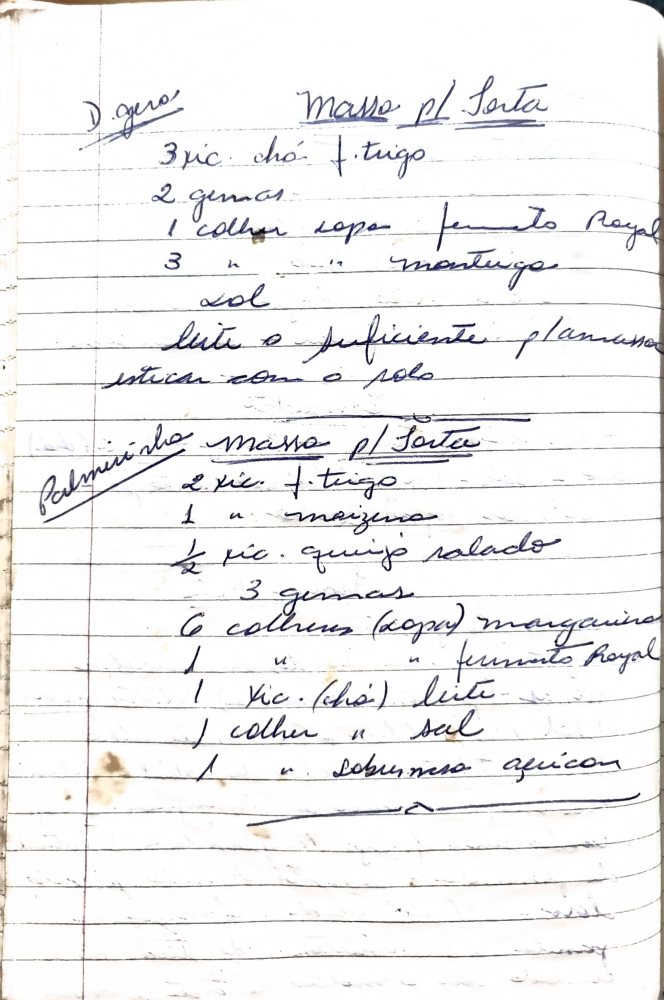 D. gera
Massa p/ Torta
3 xic. chá f. trigo
2 gemas
1 colher sopa fermento Royal
3 " " manteiga
sal
leite o suficiente p/amassa
esticar com o rolo
Palmirinha
Massa p/ Torta
2 xic. f. trigo
1 " maizena
1/2 xic. queijo ralado
3 gemas
6 colheres (sopa) margarina
1 " " fermento Royal
1 xic. (chá) leite
1 colher " sal
1 " sobremesa açúcar